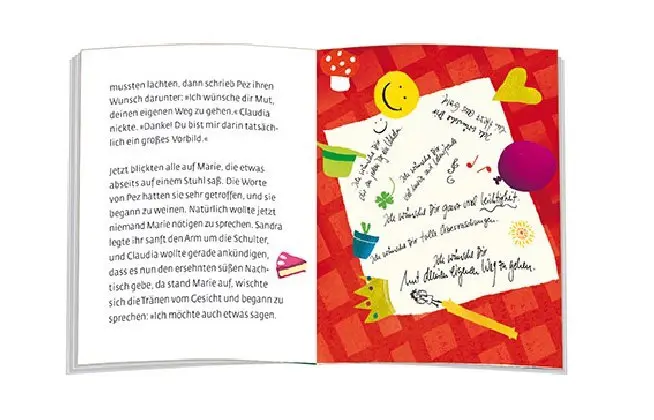 mussten lachten, dann schrieb Pez ihren
Wunsch darunter: »Ich wünsche dir Mut,
deinen eigenen Weg zu gehen.« Claudia
nickte. »Danke! Du bist mir darin tatsäch-
lich ein großes Vorbild.«
Jetzt blickten alle auf Marie, die etwas
abseits auf einem Stuhl saß. Die Worte
von Pez hatten sie sehr getroffen, und sie
begann zu weinen. Natürlich wollte jetzt
niemand Marie nötigen zu sprechen. Sandra
legte ihr sanft den Arm um die Schulter,
und Claudia wollte gerade ankündigen,
dass es nun den ersehnten süßen Nach-
tisch gebe, da stand Marie auf, wischte
sich die Tränen vom Gesicht und begann zu
sprechen: »Ich möchte auch etwas sagen.
Ich wünsche Dir
Ich wünsche Dir
Ich wünsche Dir ganz viel Leichtigkeit.
Ich wünsche Dir tolle Überraschungen.
Ich wünsche Dir
Mut deinen eigenen Weg zu gehen.